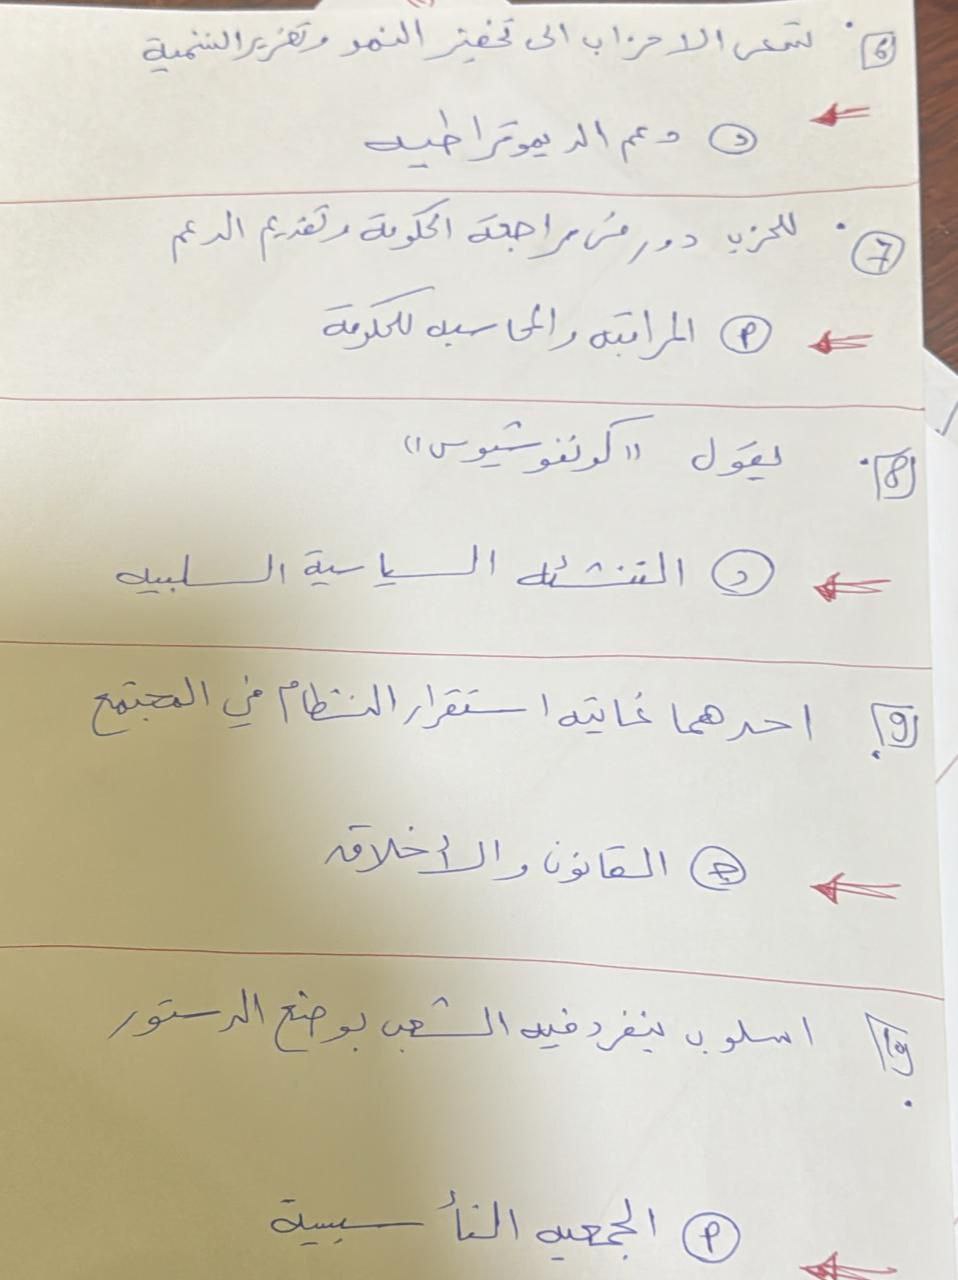 6. تسعى الاحزاب الى تحفيز النمو وتعزيز التنمية
د دعم الديموقراطيه
7. للحزب دور في مراجعة الحكومة وتقديم الدعم
م المراقبه والمحاسبه للحكومة
8. يقول "كونفوشيوس"
د التنشئه السياسية السلبيه
9. احدهما غايته استقرار النظام في المجتمع
ج القانون والأخلاق
10. اسلوب ينفرد فيه الشعب بوضع الدستور
م الجمعيه التأسيسية